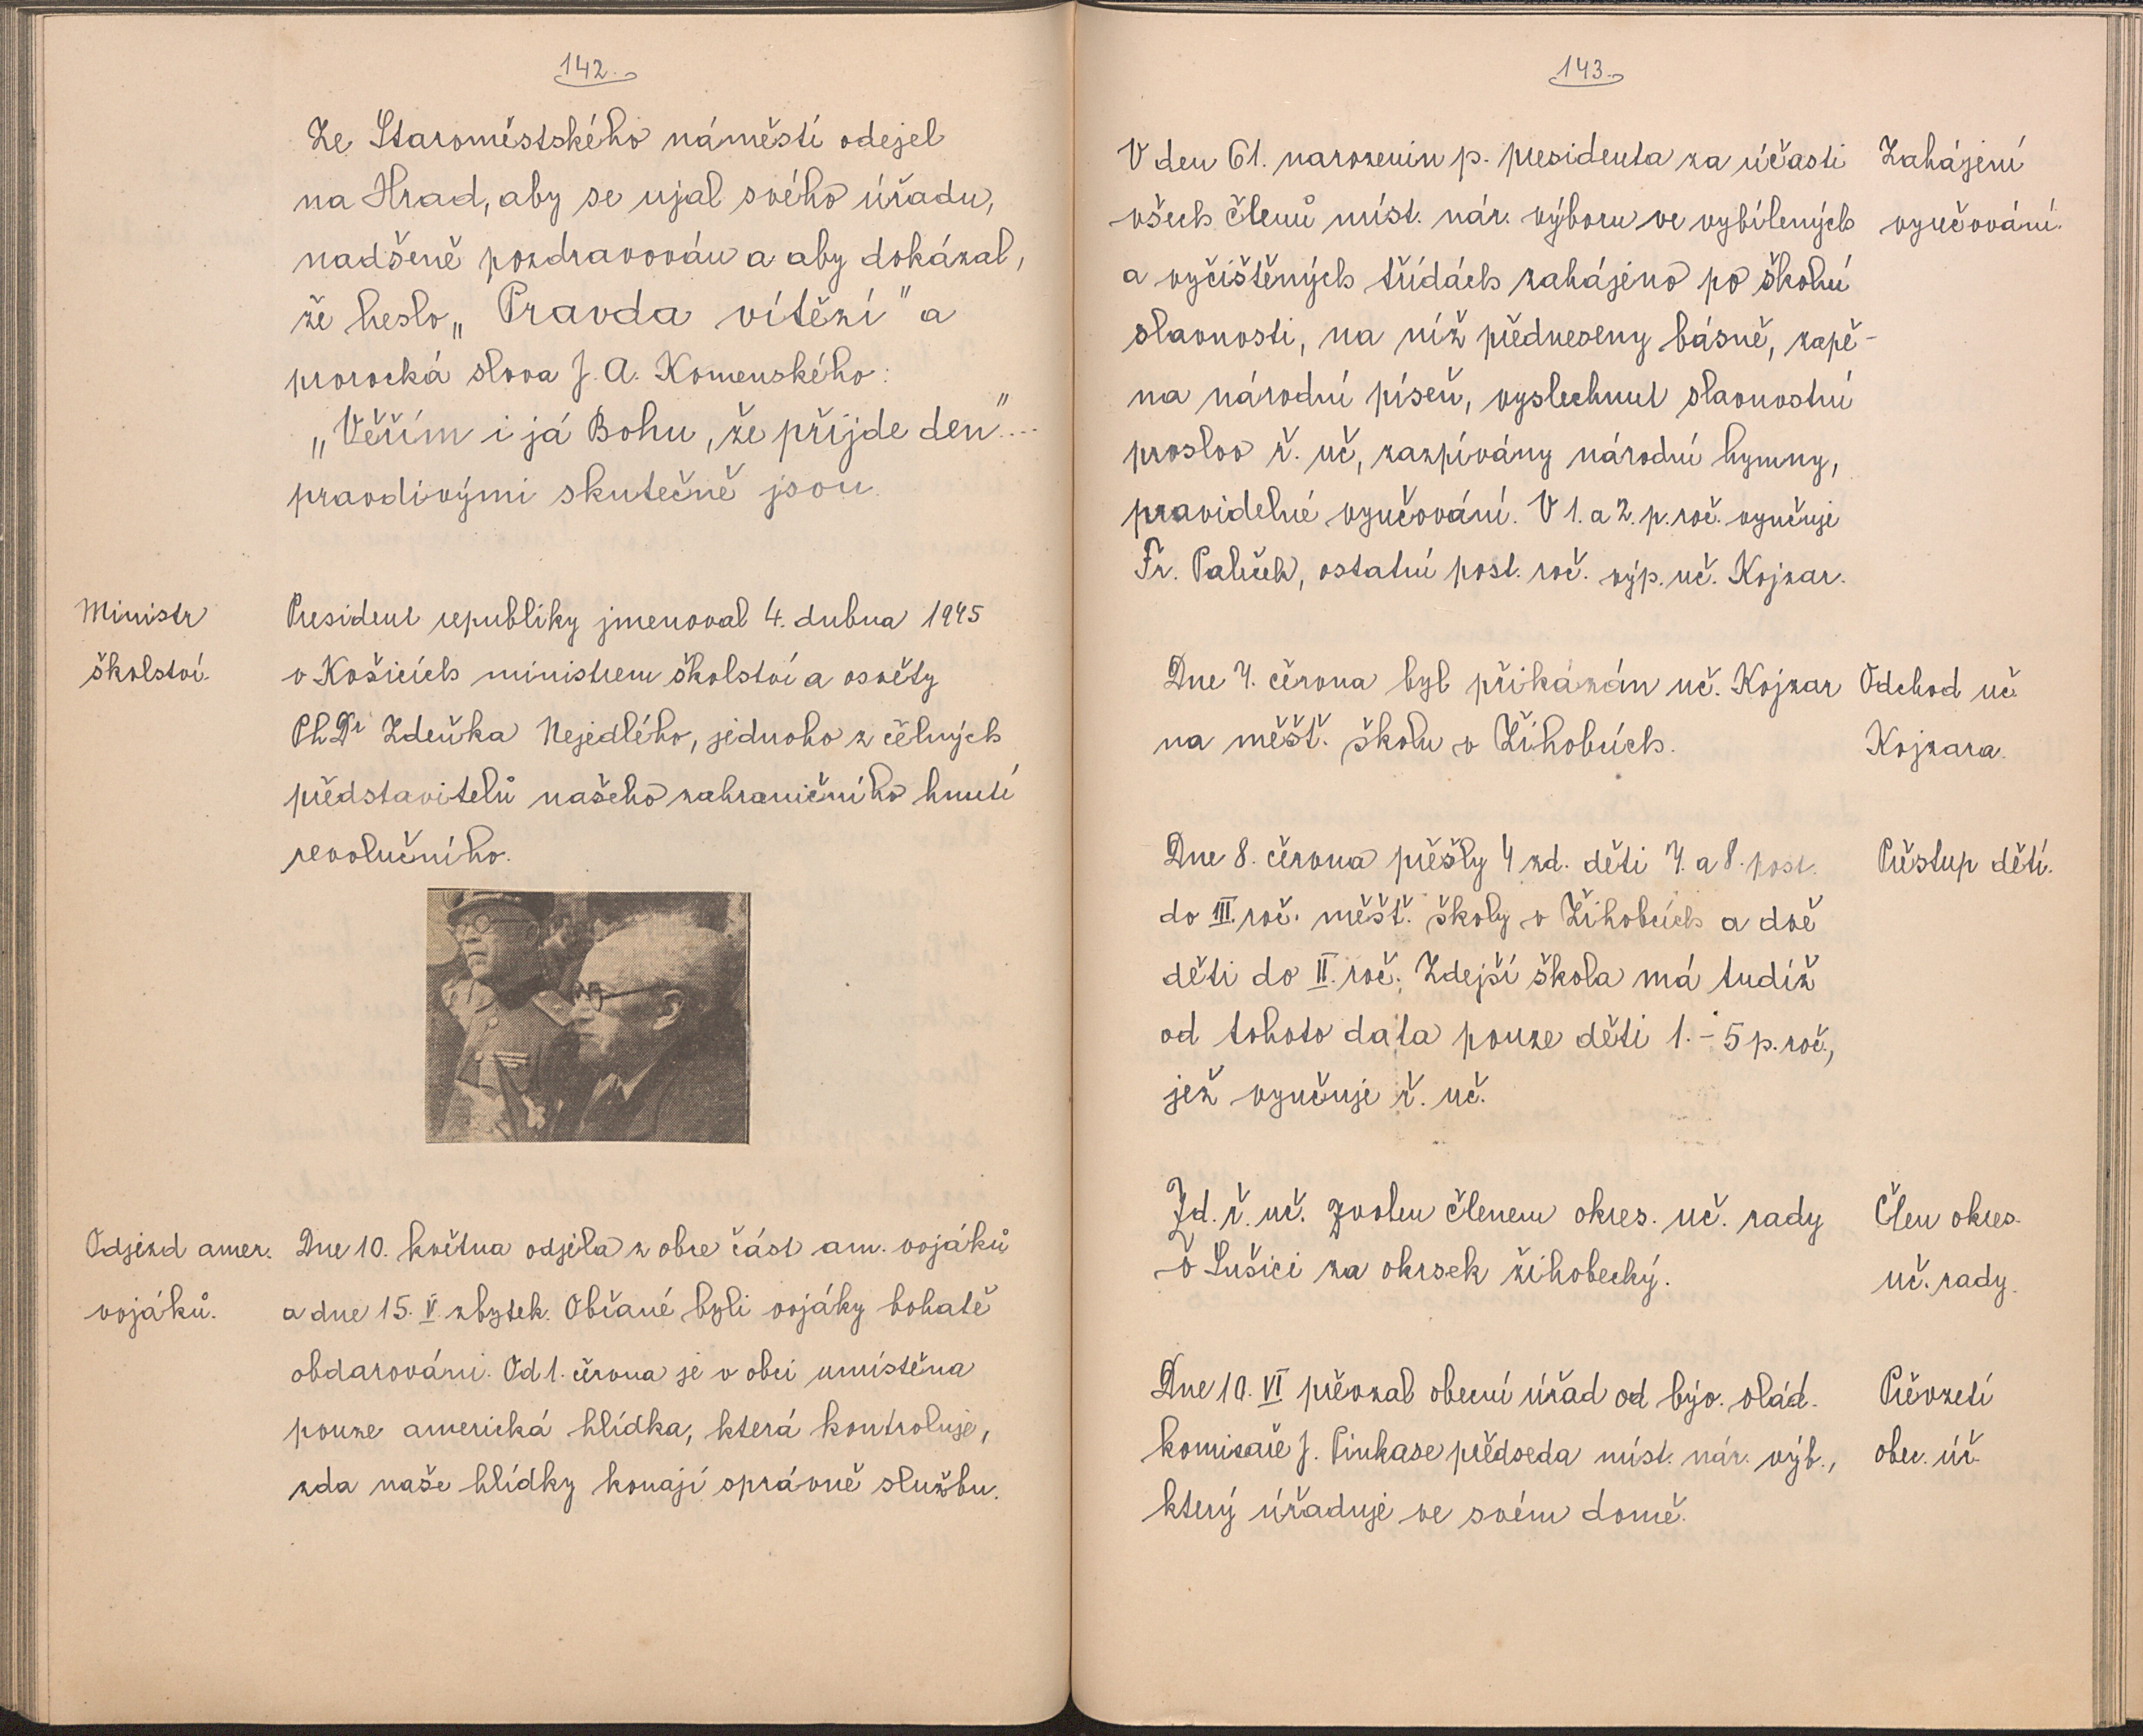 142.
Ze Staroměstského náměstí odejel
na Hrad, aby se ujal svého úřadu,
nadšeně pozdravován a aby dokázal,
že heslo „Pravda vítězí" a
prorocká slova J. A. Komenského:
„Věřím i já Bohu, že přijde den"....
pravdivými skutečně jsou.
Ministr
školství.
President republiky jmenoval 4. dubna 1945
v Košicích ministrem školství a osvěty
PhDr Zdeňka Nejedlého, jednoho z čelných
představitelů našeho zahraničního hnutí
revolučního.
Odjezd amer.
vojáků.
Dne 10. května odjela z obce část am. vojáků
a dne 15. V. zbytek. Občané byli vojáky bohatě
obdarováni. Od 1. června je v obci umístěna
pouze americká hlídka, která kontroluje,
zda naše hlídky konají správně službu.
143.
V den 61. narozenin p. presidenta za účasti
všech členů míst. nár. výboru ve vybílených
a vyčištěných třídách zahájeno po školní
slavnosti, na níž předneseny básně, zapě-
na národní píseň, vyslechnut slavnostní
proslov ř. uč, zazpívány národní hymny,
pravidelné vyučování. V 1. a 2. p. roč. vyučuje
Fr. Paleček, ostatní post. roč. výp. uč. Kojzar.
Zahájení
vyučování.
Dne 7. června byl přikázán uč. Kojzar
na měšť. školu v Žihobcích.
Odchod uč.
Kojzara.
Dne 8. června přešly 4 zd. děti 7. a 8. post.
do III. roč. měšť. školy v Žihobcích a dvě
děti do II. roč. Zdejší škola má tudíž
od tohoto data pouze děti 1. - 5 p. roč.,
jež vyučuje ř. uč.
Přestup dětí.
Zd. ř. uč. zvolen členem okres. uč. rady
v Sušici za okrsek žihobecký.
Člen okres.
uč. rady.
Dne 10. VI převzal obecní úřad od býv. vlád.
komisaře J. Pinkase předseda míst. nár. výb.,
který úřaduje ve svém domě.
Převzetí
obec. úř.